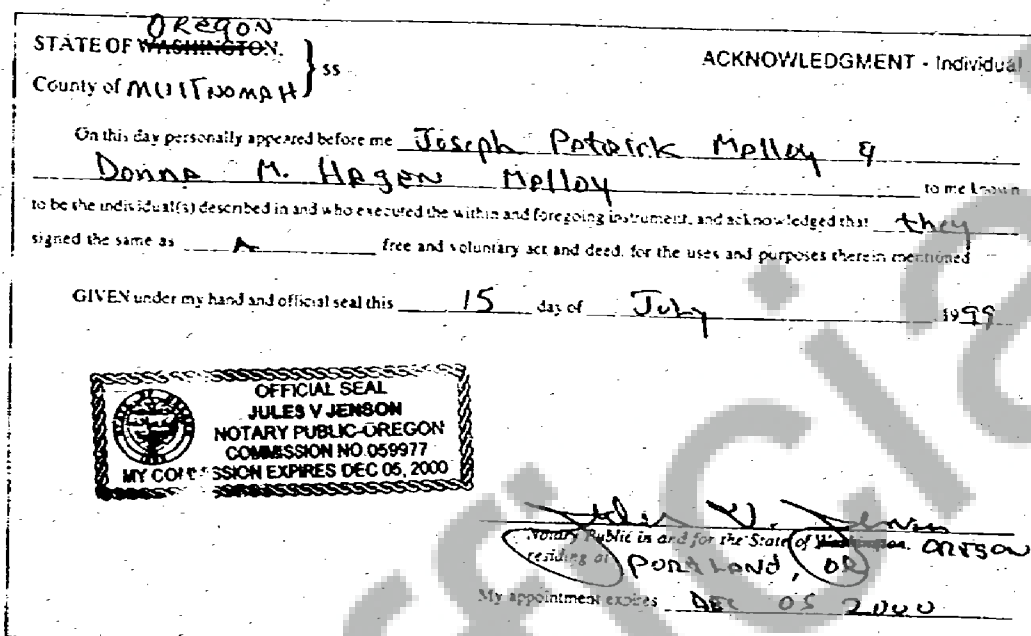 OREGON
STATE OF WASHINGTON.
ss
ACKNOWLEDGMENT - Individual
County of MULTNOMAH
On this day personally appeared before me Joseph Patrick Molloy &
Donna M. Hagen Molloy to me known
to be the individual(s) described in and who executed the within and foregoing instrument, and acknowledged that they
signed the same as A free and voluntary act and deed, for the uses and purposes therein mentioned
GIVEN under my hand and official seal this 15 day of July 1999
OFFICIAL SEAL
JULES V JENSON
NOTARY PUBLIC-OREGON
COMMISSION NO.059977
MY COMMISSION EXPIRES DEC 05, 2000
Jules V. Jenson
Notary Public in and for the State of Washington. OREGON
residing at PORTLAND, OR
My appointment expires DEC 05 2000